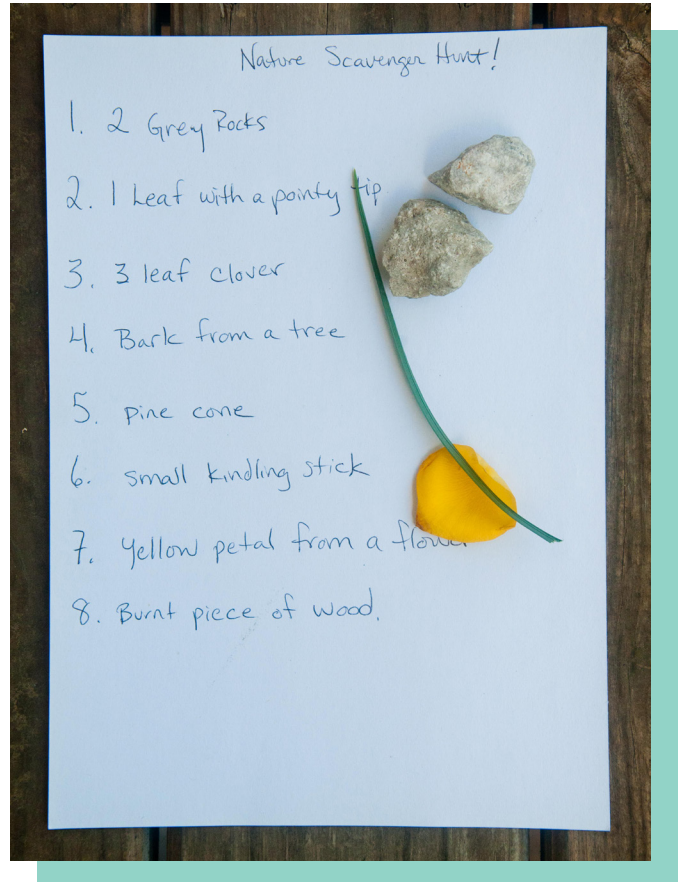 Nature Scavenger Hunt!
1. 2 Grey Rocks
2. 1 Leaf with a pointy tip
3. 3 leaf clover
4. Bark from a tree
5. pine cone
6. small kindling stick
7. Yellow petal from a flower
8. Burnt piece of wood.